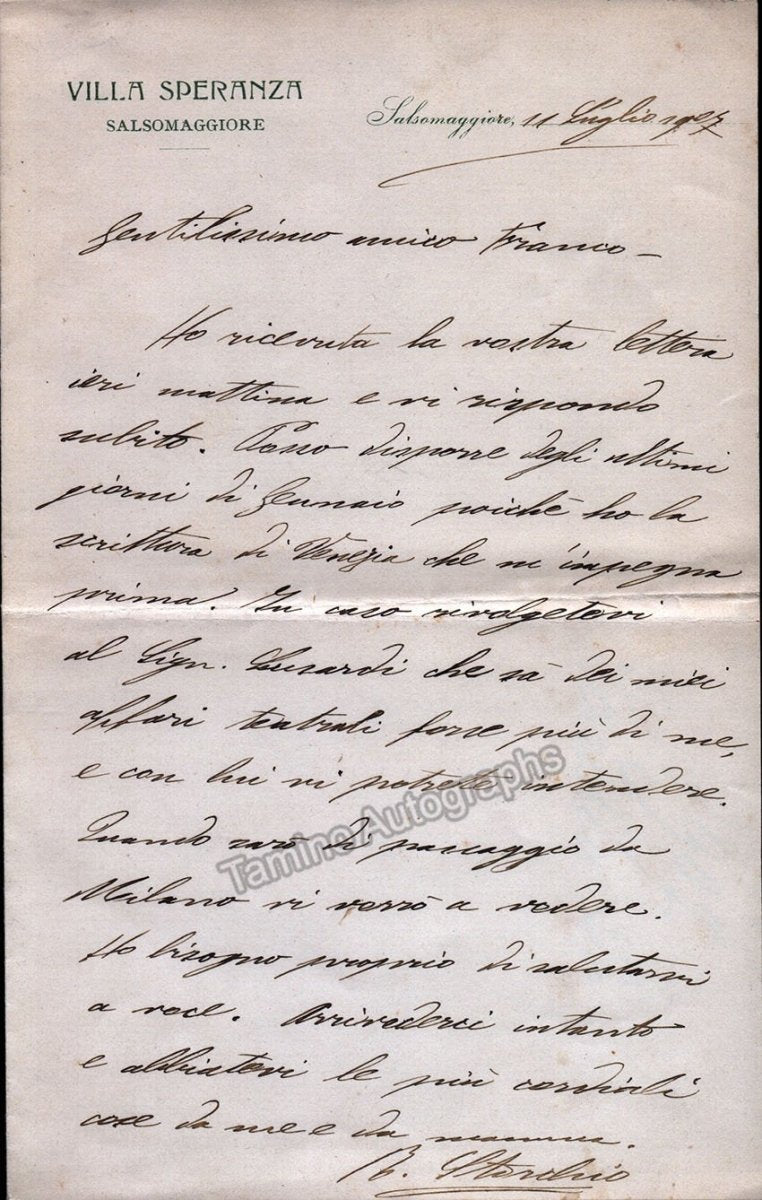 VILLA SPERANZA
SALSOMAGGIORE
Salsomaggiore, 11 Luglio 1907
Gentilissimo amico Franco —
Ho ricevuta la vostra lettera
ieri mattina e vi rispondo
subito. Posso disporre degli ultimi
giorni di Gennaio poichè ho la
scrittura di Venezia che m'impegna
prima. In caso rivolgetevi
al Sign. Lusardi che sà dei miei
affari teatrali forse più di me,
e con lui vi potrete intendere.
Quando sarò di passaggio da
Milano vi verrò a vedere.
Ho bisogno proprio di salutarvi
a voce. Arrivederci intanto
e abbiatevi le più cordiali
cose da me e da mamma.
R. Storchio
Tamino Autographs